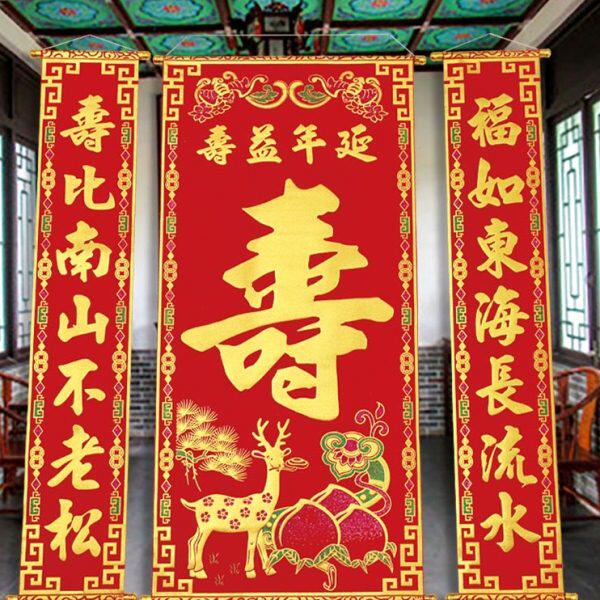 延年益壽
壽
福如東海長流水
壽比南山不老松